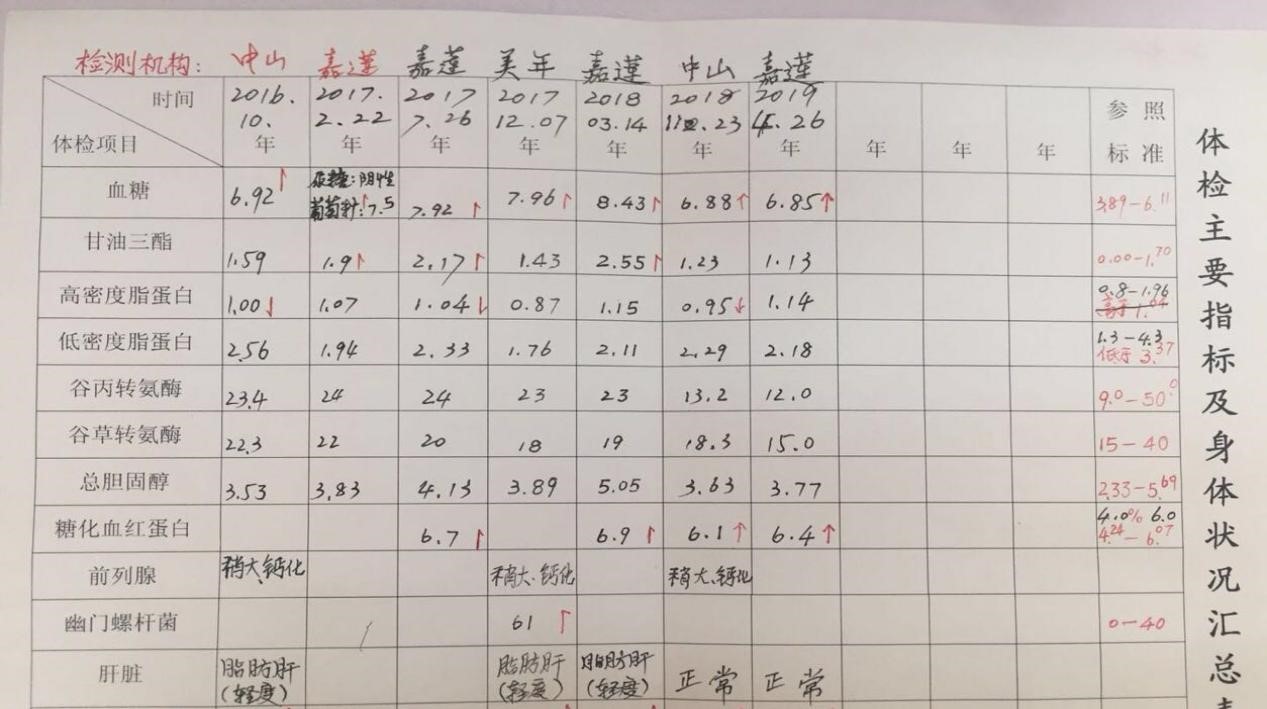 检测机构: 中山 嘉莲 嘉莲 美年 嘉莲 中山 嘉莲
时间 2016. 2017. 2017 2017 2018 2018 2019 参照
10. 2.22 7.26 12.07 03.14 .23 .26
体检项目 年 年 年 年 年 年 年 年 年 年 标准
尿糖:阴性
血糖 6.92↑ 葡萄糖:7.5↑ 7.92↑ 7.96↑ 8.43↑ 6.88↑ 6.85↑ 3.89-6.11
甘油三酯 1.59 1.9↑ 2.17↑ 1.43 2.55↑ 1.23 1.13 0.00-1.70
高密度脂蛋白 1.00↓ 1.07 1.04↓ 0.87 1.15 0.95↓ 1.14 0.8-1.96
高于1.04
低密度脂蛋白 2.56 1.94 2.33 1.76 2.11 2.29 2.18 1.3-4.3
低于3.37
谷丙转氨酶 23.4 24 24 23 23 13.2 12.0 9.0-50.0
谷草转氨酶 22.3 22 20 18 19 18.3 15.0 15-40
总胆固醇 3.53 3.83 4.13 3.89 5.05 3.63 3.77 2.33-5.69
糖化血红蛋白 6.7↑ 6.9↑ 6.1↑ 6.4↑ 4.0% 6.0
4.24-6.07
前列腺 稍大、钙化 稍大、钙化 稍大、钙化
幽门螺杆菌 61↑ 0-40
肝脏 脂肪肝 脂肪肝 脂肪肝 正常 正常
(轻度) (轻度) (轻度)
体检主要指标及身体状况汇总